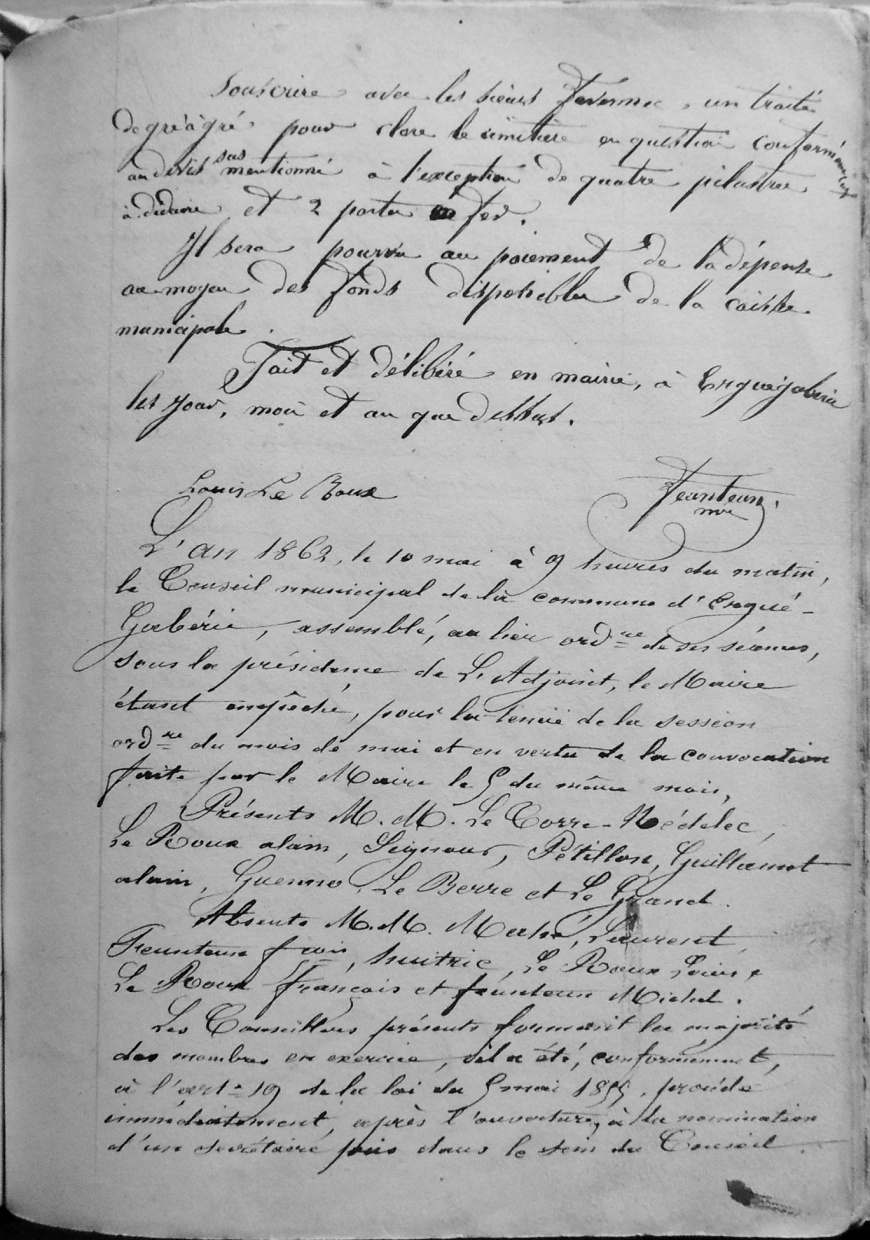 souscrire avec les sieurs Favennec, un traité
de gré à gré pour clore le cimetière en question conformément
au devis sus mentionné à l'exception de quatre pilastres
à déduire et 2 portes en fer.
Il sera pourvu au paiement de la dépense
au moyen des fonds disponibles de la caisse
municipale.
Fait et délibéré en mairie, à Ergué-gabéric
les jour, mois et an que dessus.
Louis Le Roux
Feunteun
mre
L'an 1862, le 10 mai à 9 heures du matin,
le Conseil municipal de la commune d'Ergué-
Gabéric, assemblé, au lieu ordre de ses séances,
sous la présidence de L'Adjoint, le Maire
étant empêché, pour la tenue de la session
ordre du mois de mai et en vertu de la convocation
faite par le Maire le 5 du même mois,
Présents M.M. Le Corre-Nédelec,
Le Roux alain, Seignour, Pétillon, Guillamot
alain, Guenno, Le Berre et Le Grand.
Absents M.M. Mahé, Laurent,
Feunteun frois, huitric, Le Roux Louis,
Le Roux François et feunteun Michel.
Les Conseillers présents formant la majorité
des membres en exercice, il a été, conformément,
à l'art. 19 de la loi du 5 mai 1855, procédé
immédiatement, après l'ouverture, à la nomination
d'un secrétaire pris dans le sein du Conseil.